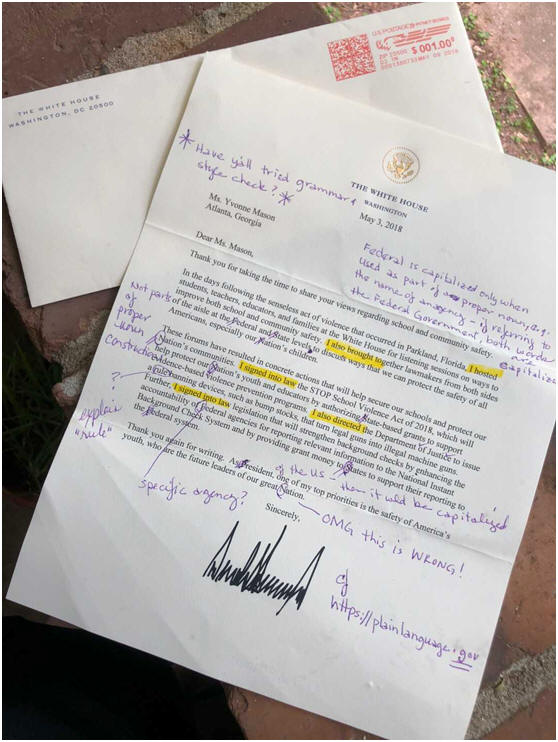 U.S. POSTAGE PITNEY BOWES
ZIP 20500 $ 001.00⁰
MAY 09 2018
THE WHITE HOUSE
WASHINGTON, DC 20500
* Have y'all tried grammar &
style check? *
THE WHITE HOUSE
WASHINGTON
May 3, 2018
Ms. Yvonne Mason
Atlanta, Georgia
Federal is capitalized only when
used as part of a proper noun, e.g.
the name of an agency - if referring to
the Federal Government, both words
capitalized
Dear Ms. Mason,
Thank you for taking the time to share your views regarding school and community safety.
In the days following the senseless act of violence that occurred in Parkland, Florida, I hosted
students, teachers, educators, and families at the White House for listening sessions on ways to
improve both school and community safety. I also brought together lawmakers from both sides
of the aisle at the Federal and State levels to discuss ways that we can protect the safety of all
Americans, especially our Nation's children.
Not parts
of
proper
noun
construction
These forums have resulted in concrete actions that will help secure our schools and protect our
Nation's communities. I signed into law the STOP School Violence Act of 2018, which will
help protect our Nation's youth and educators by authorizing State-based grants to support
evidence-based violence prevention programs. I also directed the Department of Justice to issue
a rule banning devices, such as bump stocks, that turn legal guns into illegal machine guns.
Further, I signed into law legislation that will strengthen background checks by enhancing the
accountability of Federal agencies for reporting relevant information to the National Instant
Background Check System and by providing grant money to States to support their reporting to
the Federal system.
?
explain
"rule"
Thank you again for writing. As President, one of my top priorities is the safety of America's
youth, who are the future leaders of our great Nation.
of the US - then it would be capitalized
specific agency?
OMG this is WRONG!
Sincerely,
cf
https://plainlanguage.gov